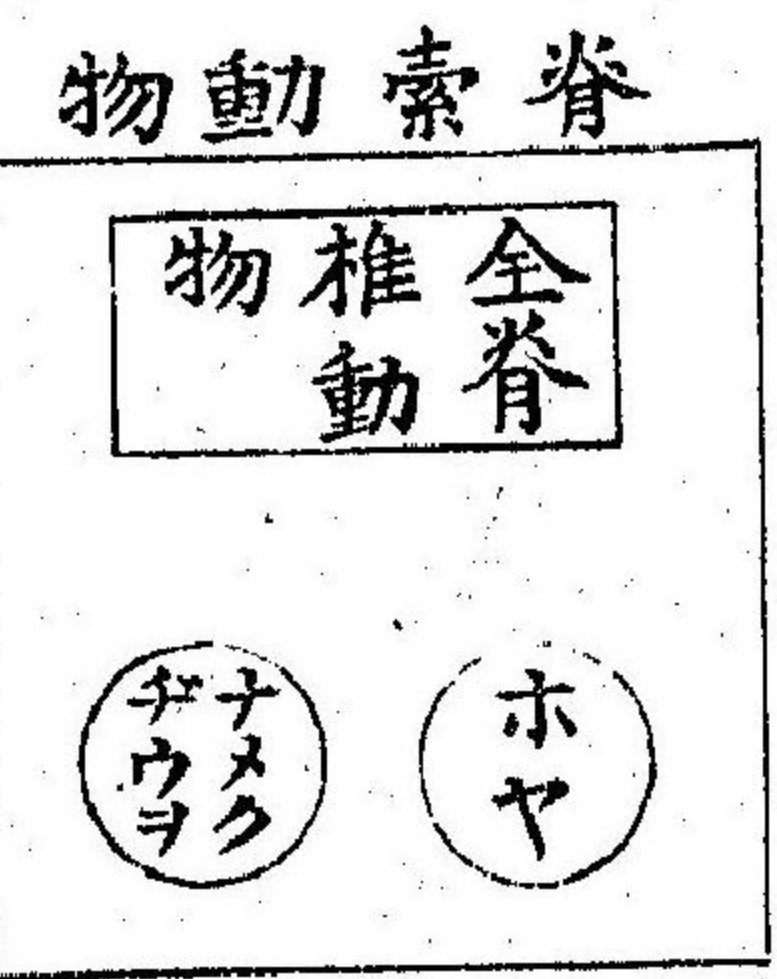 脊索動物
全脊
椎動
物
ホヤ
ナメク
ヂウヲ